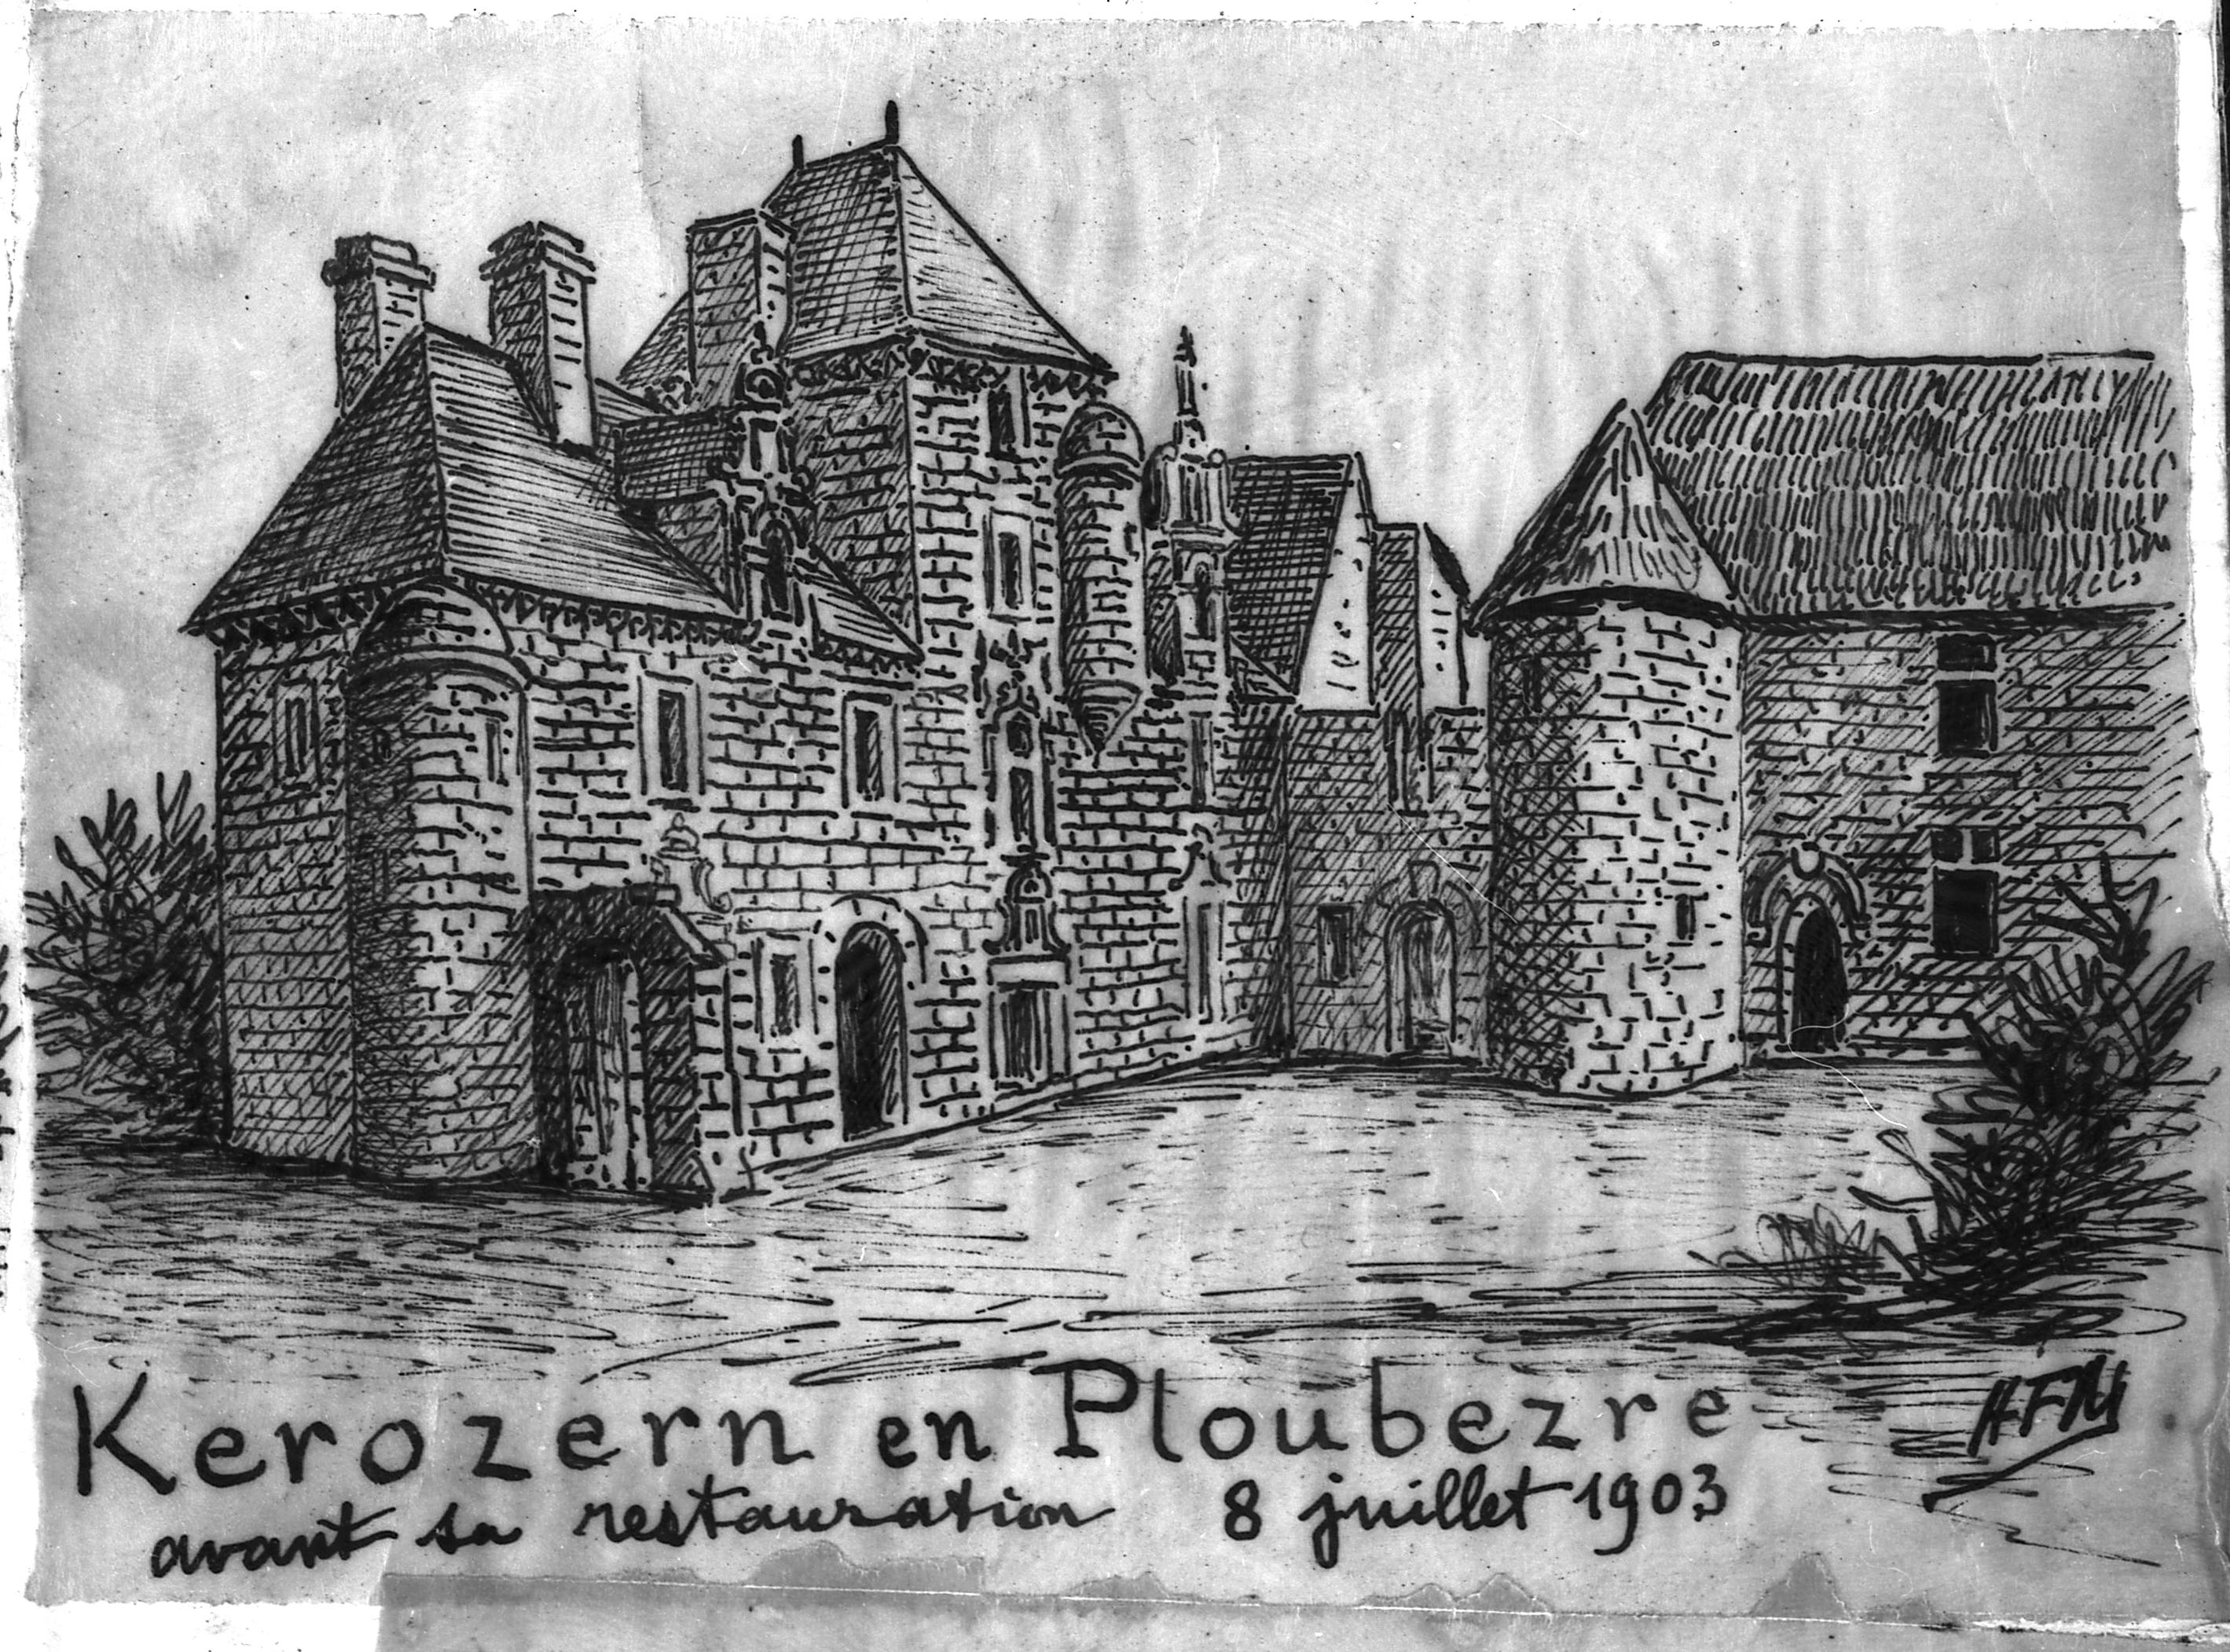 Kerozern en Ploubezre
avant sa restauration 8 juillet 1903
HFM